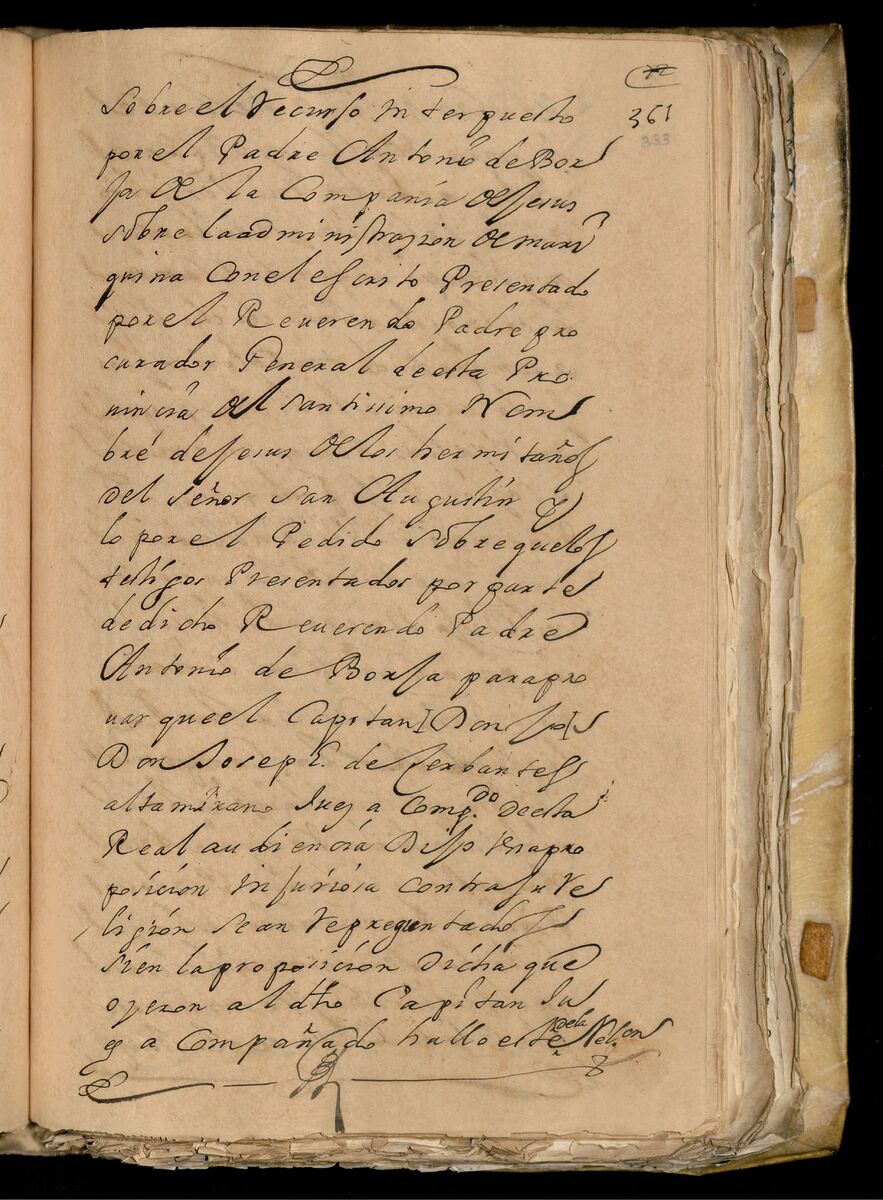 361
333
sobre el Recurso interpuesto
por el Padre Antonio de Bor
ja de la Compania de Jesus
sobre la administrazion de mari
quina con el escrito Presentado
por el Reuerendo Padre pro
curador General de esta Pro
uincia del santissimo Nom
bre de Jesus de los hermitaños
del señor san Augustin y
lo por el Pedido sobre que los
testigos Presentados por parte
de dicho Reuerendo Padre
Antonio de Borja para pro
uar que el Capitan [Don Jo]
Don Josep E. de Cerbantes
altamirano Juez a Comp.do de esta
Real audiencia Dijo una pro
posicion injuriosa contra su Re
ligion sean repreguntados
si en la proposicion dicha que
oyeron al dho Capitan Ju
ez a Compañado hallo este de la Relon